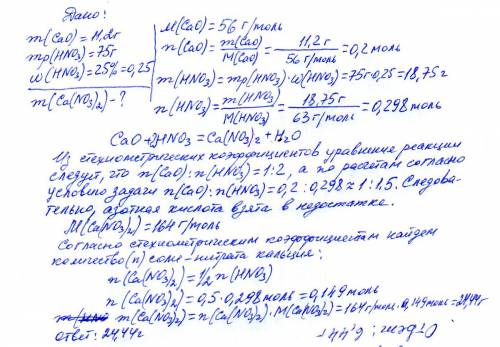 Дано:
m(CaO)=11,2г
mр(HNO₃)=75г
ω(HNO₃)=25%=0,25
m(Ca(NO₃)₂)-?
M(CaO)=56 г/моль
n(CaO)=m(CaO)/M(CaO)=11,2г/56 г/моль=0,2 моль
m(HNO₃)=mр(HNO₃)·ω(HNO₃)=75г·0,25=18,75г
n(HNO₃)=m(HNO₃)/M(HNO₃)=18,75г/63 г/моль=0,298 моль
CaO+2HNO₃=Ca(NO₃)₂+H₂O
Из стехиометрических коэффициентов уравнение реакции
следует, что n(CaO):n(HNO₃)=1:2, а по расчетам согласно
условию задачи n(CaO):n(HNO₃)=0,2:0,298≈1:1,5. Следова-
тельно, азотная кислота взята в недостатке.
M(Ca(NO₃)₂)=164 г/моль
Согласно стехиометрическим коэффициентам найдем
количество(n) соли-нитрата кальция:
n(Ca(NO₃)₂)=½ n(HNO₃)
n(Ca(NO₃)₂)=0,5·0,298 моль=0,149 моль
m(Ca(NO₃)₂)=n(Ca(NO₃)₂)·M(Ca(NO₃)₂)=164г/моль·0,149моль=24,44г
ответ: 24,44г
Ответ: 6,44г